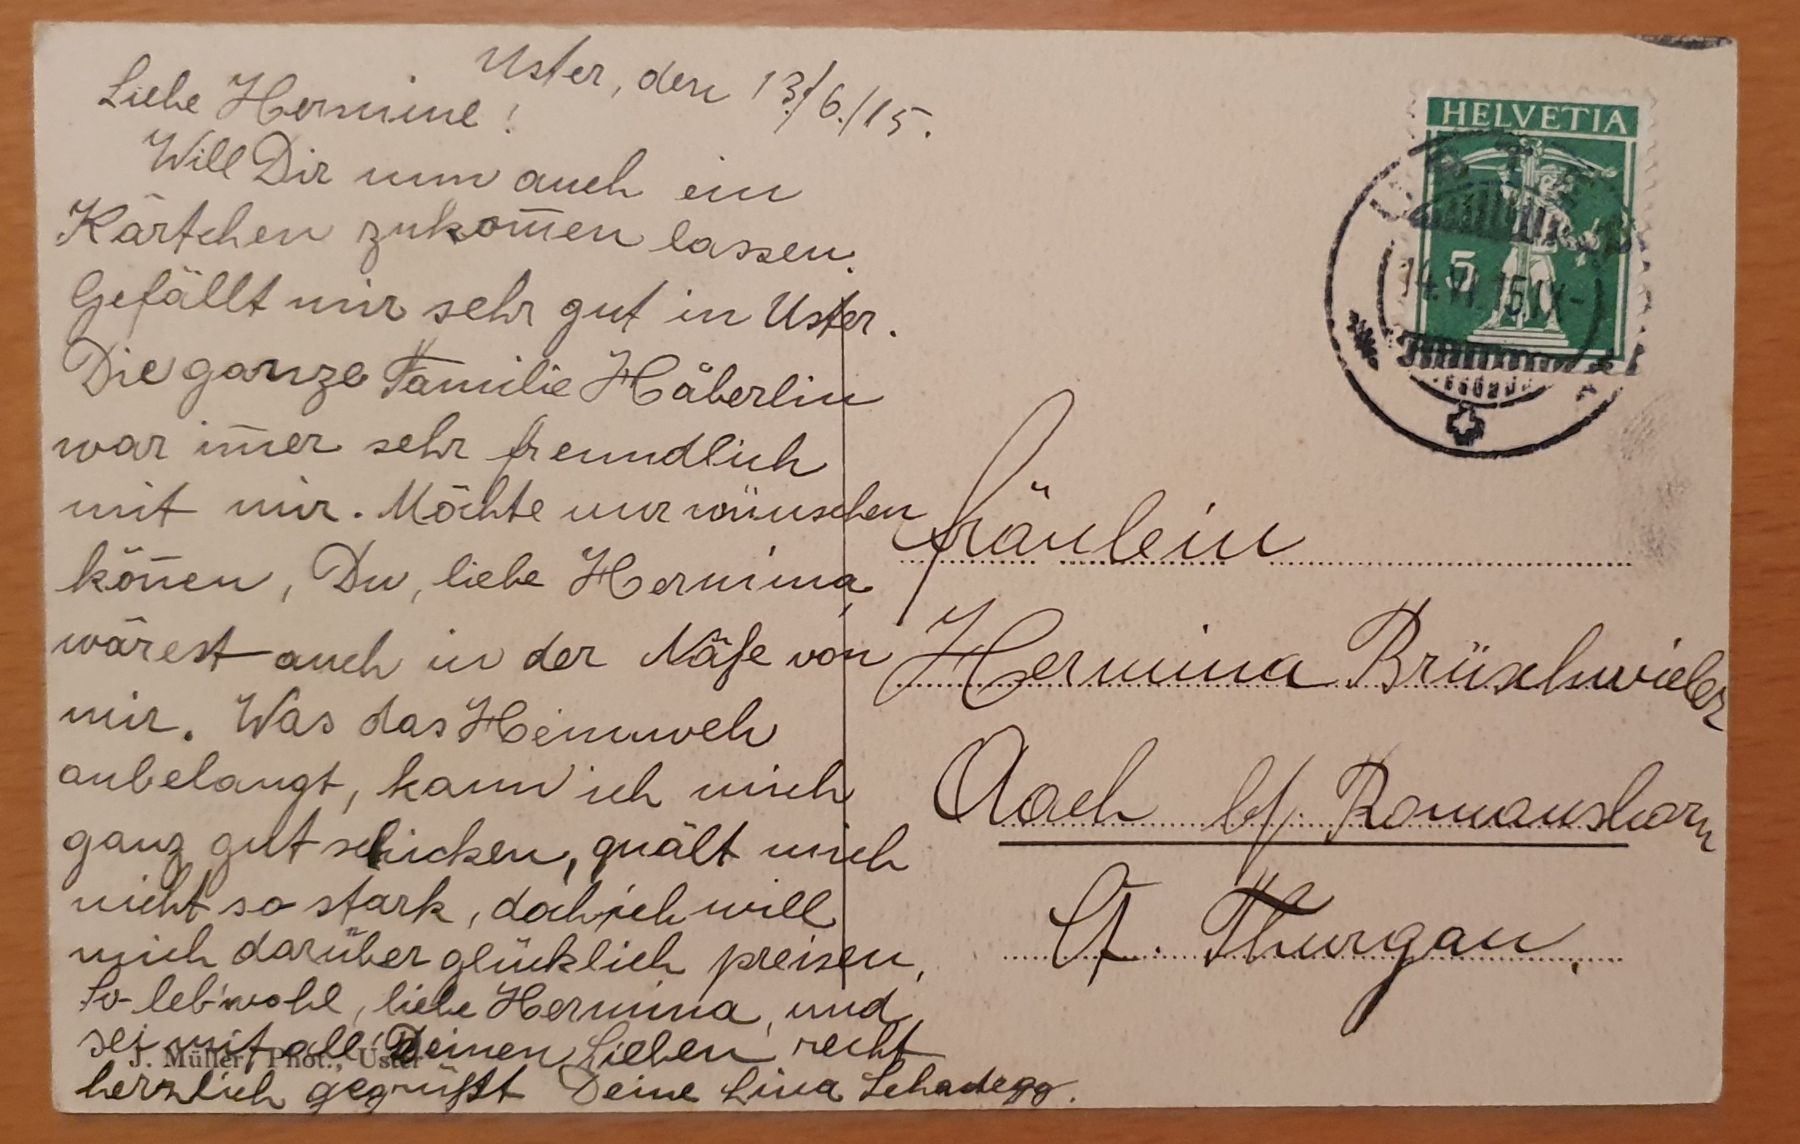 Uster, den 13./6./15.
Liebe Hermine!
Will Dir nun auch ein
Kärtchen zukom̅en lassen.
Gefällt mir sehr gut in Uster.
Die ganze Familie Häberlin
war im̅er sehr freundlich
mit mir. Möchte nur wünschen
kön̅en, Du, liebe Hermina,
wärest auch in der Nähe von
mir. Was das Heimweh
anbelangt, kann ich mich
ganz gut schicken, quält mich
nicht so stark, doch ich will
mich darüber glücklich preisen.
So leb' wohl, liebe Hermina, und
sei mit all Deinen Lieben recht
herzlich gegrüßt Deine Lina Schadegg.
J. Müller, Phot., Uster
HELVETIA
5
USTER
14.VI.15.IX-
Fräulein
Hermina Brüschwieler
Aach b/. Romanshorn
Ct. Thurgau.